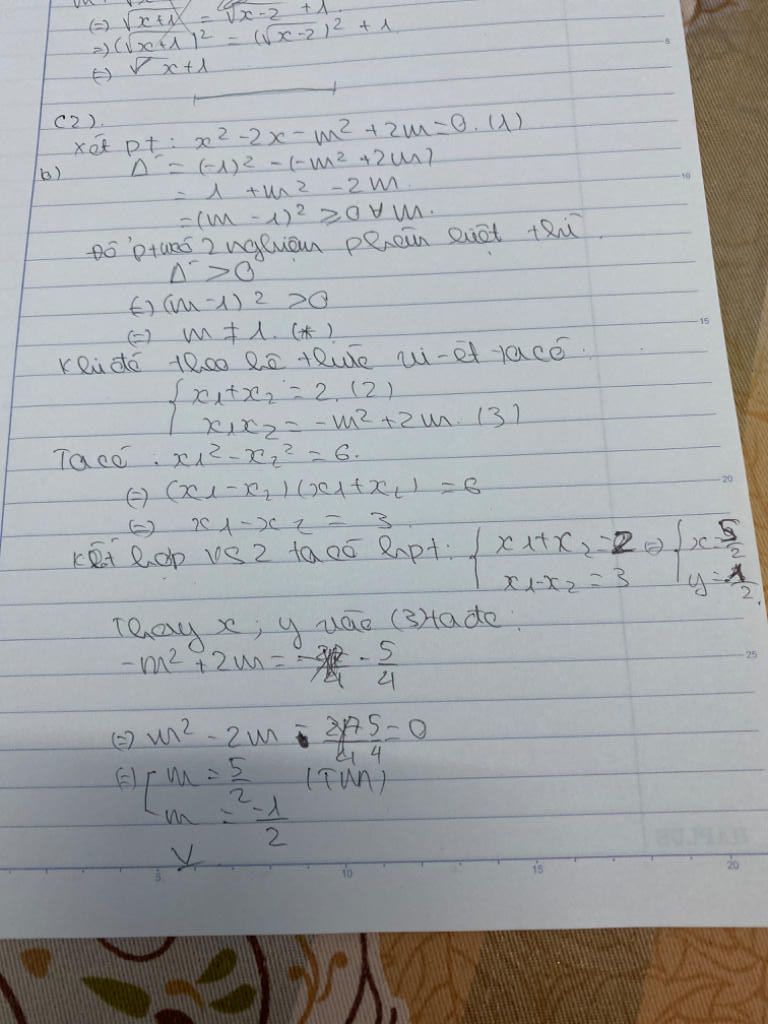 (=) √x+1 = √x-2 +1.
=) (√x+1)² = (√x-2)² +1
(=) √x+1
C2).
Xét pt: x² -2x -m² +2m=0. (1)
b) Δ' = (-1)² - (-m² +2m)
= 1 +m² -2m.
= (m -1)² ≥0 ∀m.
Để pt có 2 nghiệm phân biệt thì
Δ' >0
(=) (m-1)² >0
(=) m ≠ 1. (*)
Khi đó theo hệ thức vi-ét ta có:
{ x1+x2 = 2. (2)
x1x2 = -m² +2m. (3)
Ta có: x1² -x2² = 6.
(=) (x1-x2)(x1+x2) = 6
(=) x1-x2 = 3.
Kết hợp vs 2 ta có hpt: { x1+x2 = 2 (=) { x=5/2
x1-x2 = 3 y=-1/2.
Thay x; y vào (3) ta đc:
-m² +2m = -5/4
(=) m² -2m - 5/4 = 0
(=) [ m = 5/2 (TMĐK)
m = -1/2
V
5
10
15
20
25
5 10 15 20